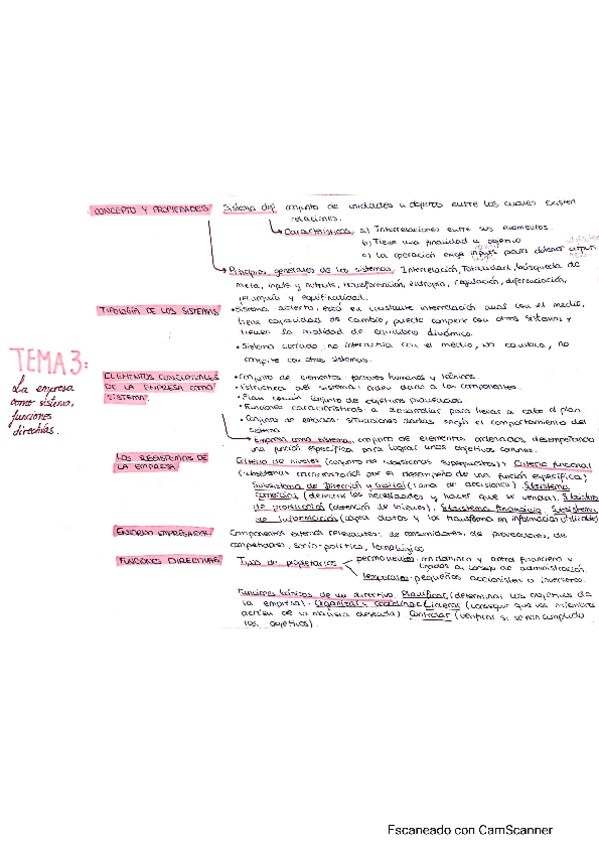 CONCEPTO Y PROPIEDADES
Sistema def. conjunto de unidades u objetos entre los cuales existen
relaciones.
Características a) Interrelaciones entre sus elementos.
b) Tiene una finalidad u objetivo
c) La operación exige inputs para obtener outputs.
Principios generales de los sistemas. Interrelación, Totalidad, búsqueda de
meta, inputs y outputs, transformación, entropía, regulación, diferenciación,
jerarquía y equifinalidad.
TIPOLOGÍA DE LOS SISTEMAS
• Sistema abierto, está en constante interrelación con el medio,
tiene capacidad de cambio, puede competir con otros sistemas y
tienden la finalidad de equilibrio dinámico.
• Sistema cerrado: no interactúa con el medio, no cambia, no
compite con otros sistemas.
TEMA 3:
La empresa
como sistema,
funciones
directivas.
ELEMENTOS FUNCIONALES
DE LA EMPRESA COMO
SISTEMA.
• Conjunto de elementos: factores humanos y técnicos.
• Estructura del sistema: orden dado a los componentes.
• Plan común conjunto de objetivos
• Funciones características a desarrollar para llevar a cabo el plan
• Conjunto de estados: situaciones según el comportamiento del
sistema
Empresa como sistema, conjunto de elementos ordenados desempeñando
una función específica para lograr unos objetivos comunes.
LOS DE
LA EMPRESA
Criterio de niveles (conjunto de subsistemas superpuestos). Criterio funcional
(subsistemas por el desempeño de una función específica)
Subsistema de Dirección y Gestión (toma de decisiones). Subsistema
comercial (determinar las necesidades y hacer que se vendan).
de producción (obtención de bienes), Subsistema financiero, Subsistema
de Información (capta datos y los transforma en información)
ENTORNO EMPRESARIAL
Componentes externos relevantes: de consumidores, de proveedores, de
competidores, socio-político, tecnológico
FUNCIONES DIRECTIVAS
Tipos de propietarios
permanentes: financiero y
ligados al consejo de administración.
temporales: pequeños accionistas o inversores.
Funciones básicas de un directivo. Planificar (determinar los objetivos de
la empresa). Organizar y coordinar. Liderar (conseguir que los miembros
actúen de la manera deseada) Controlar (verificar si se han cumplido
los objetivos).
Escaneado con CamScanner